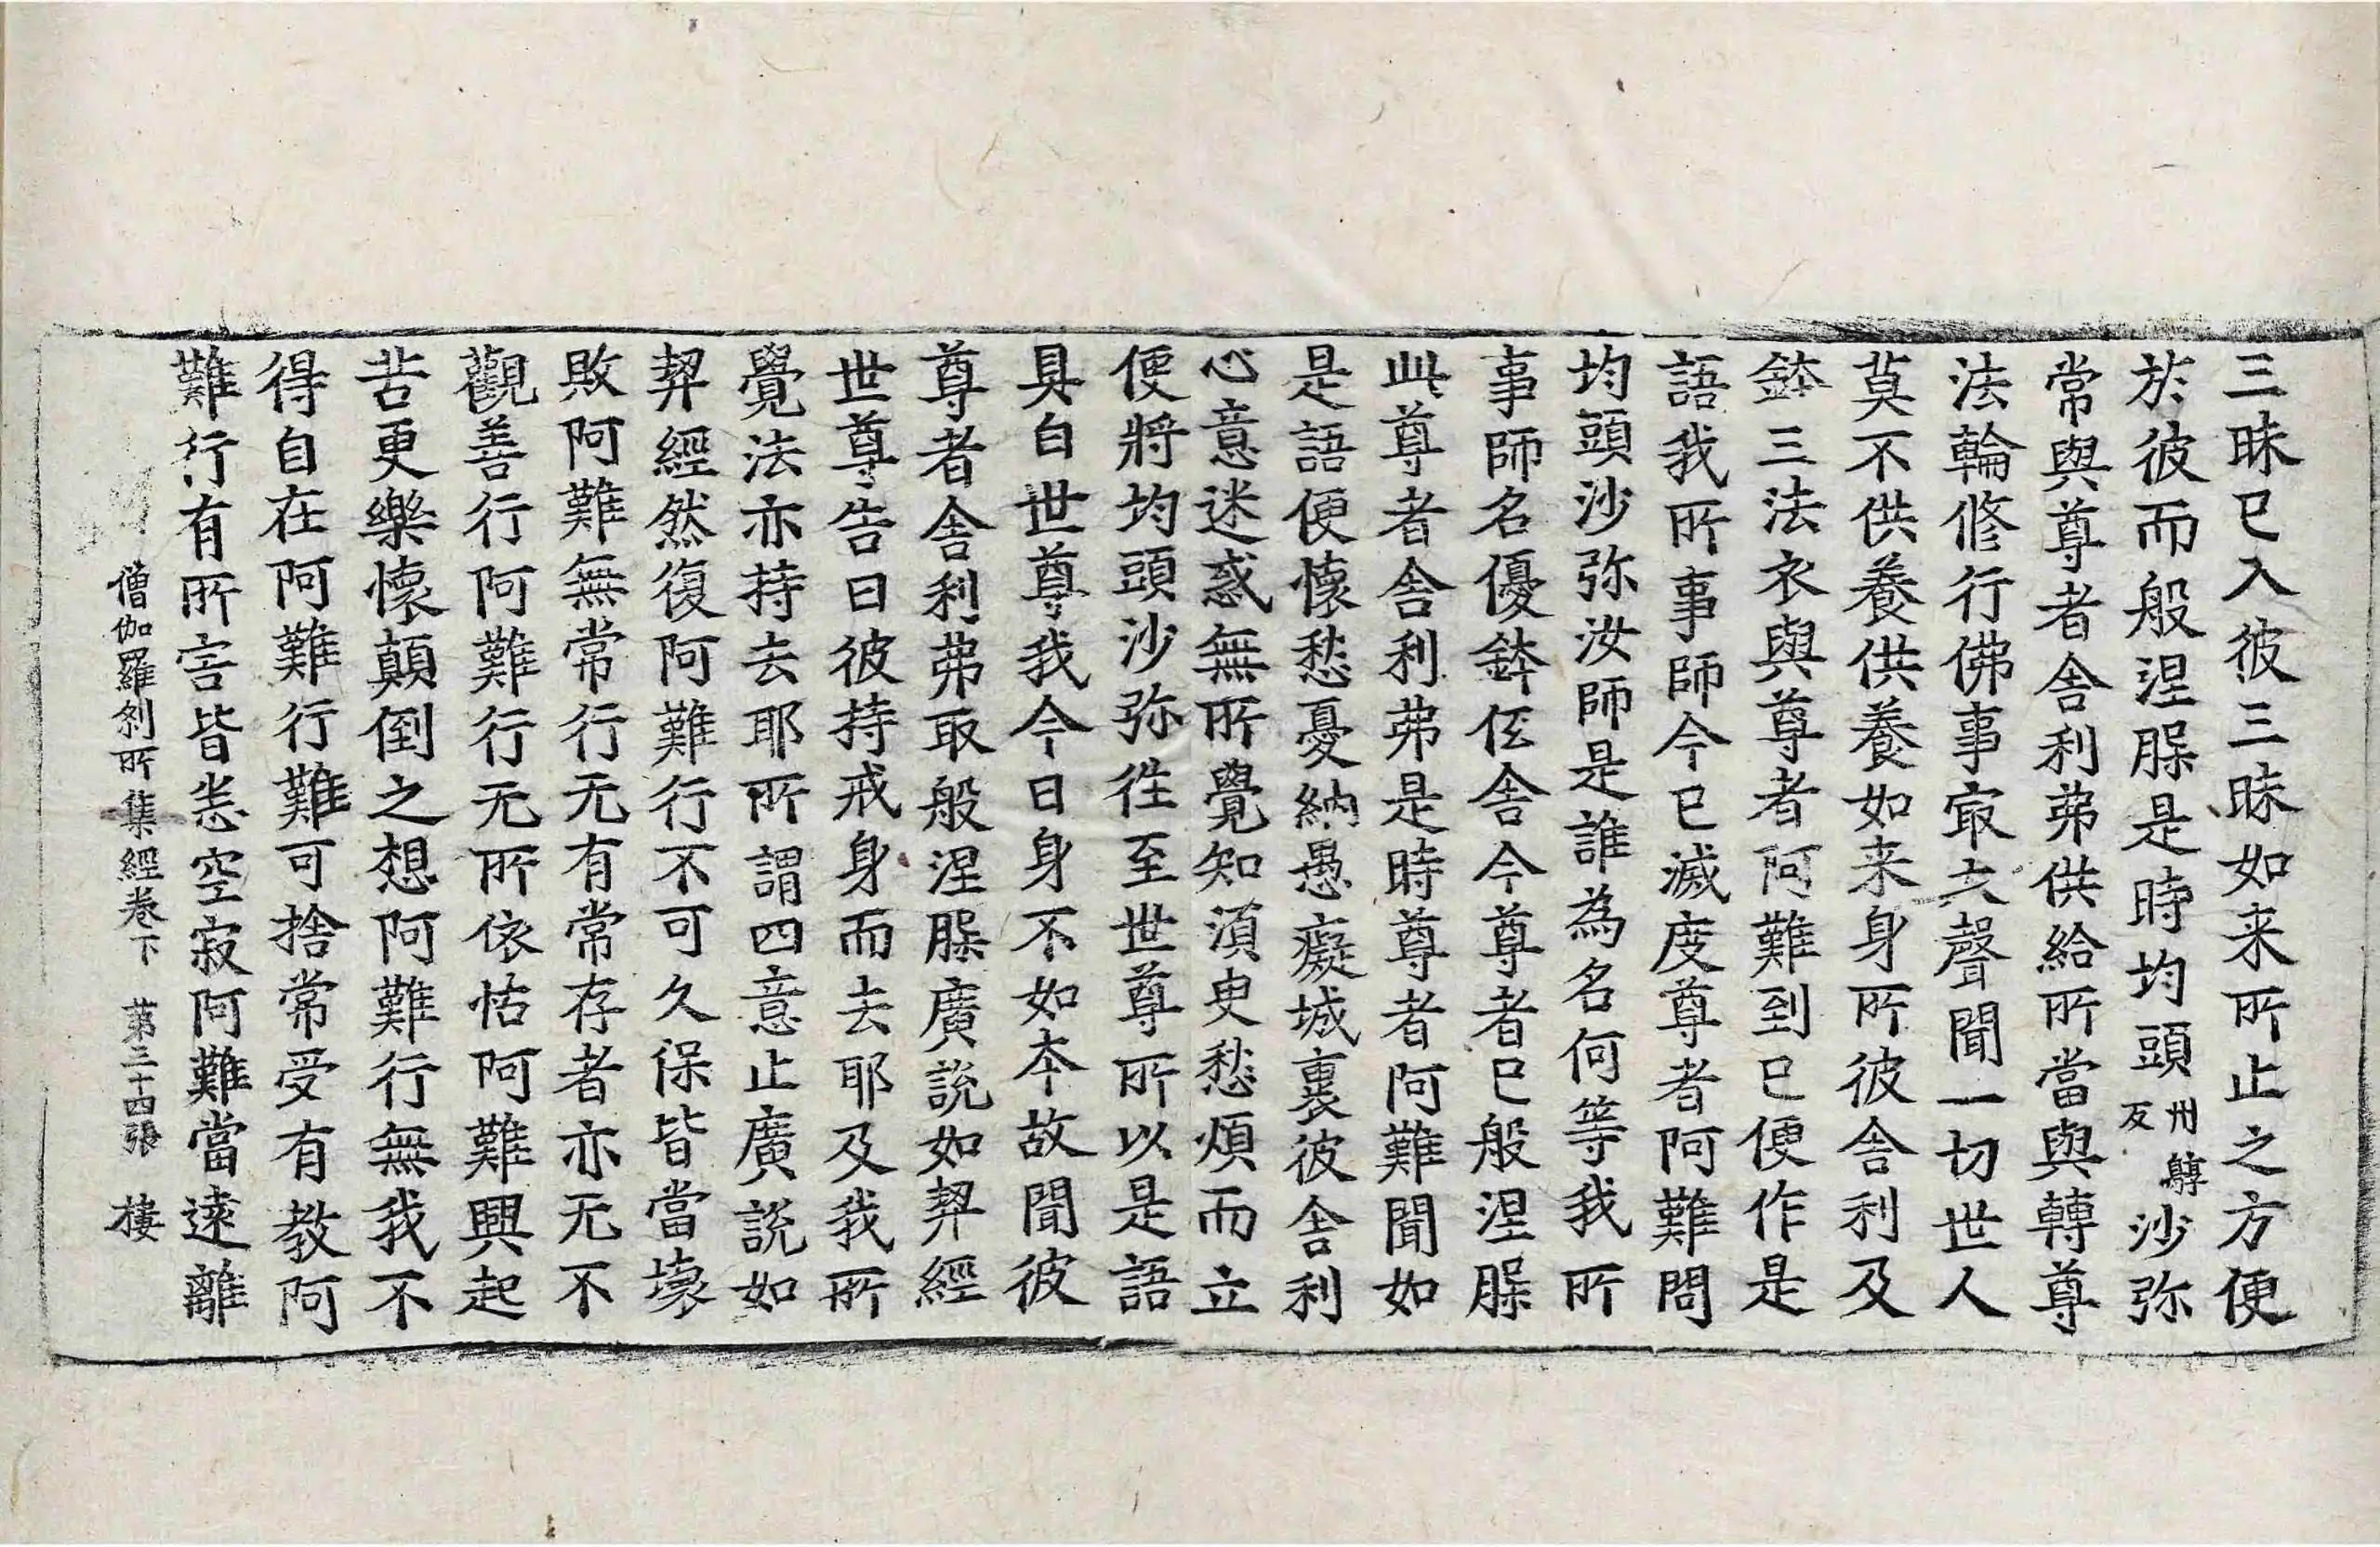 三昧已入彼三昧如来所止之方便
於彼而般涅槃是時均頭卅孽反沙弥
常與尊者舍利弗供給所當與轉尊
法輪修行佛事㝡大聲聞一切世人
莫不供養供養如来身所彼舍利及
鉢三法衣與尊者阿難到已便作是
語我所事師今已滅度尊者阿難問
均頭沙弥汝師是誰為名何等我所
事師名優鉢伭舍今尊者已般涅槃
此尊者舍利弗是時尊者阿難聞如
是語便懷愁憂納愚癡城裏彼舍利
心意迷惑無所覺知須臾愁煩而立
便將均頭沙弥往至世尊所以是語
具白世尊我今日身不如本故聞彼
尊者舍利弗取般涅槃廣說如契經
世尊告曰彼持戒身而去耶及我所
覺法亦持去耶所謂四意止廣說如
契經然復阿難行不可久保皆當壞
敗阿難無常行无有常存者亦无不
觀善行阿難行无所依怙阿難興起
苦更樂懷顛倒之想阿難行無我不
得自在阿難行難可捨常受有教阿
難行有所害皆悉空寂阿難當遠離
僧伽羅刹所集經卷下 第三十四張 樓